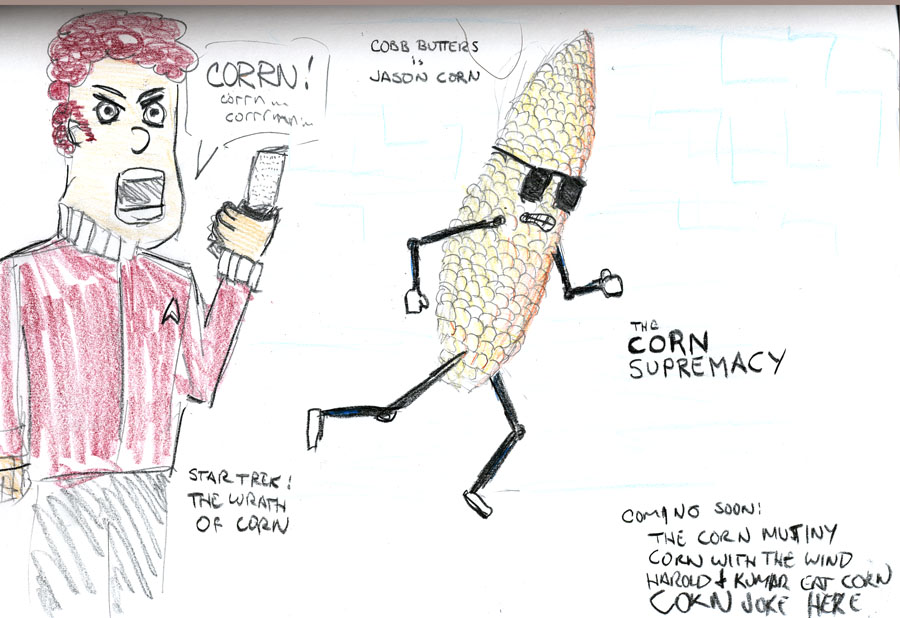 CORRN!
corrn...
corrrnnn...
COBB BUTTERS
is
JASON CORN
THE
CORN
SUPREMACY
STAR TREK:
THE WRATH
OF CORN
COMING SOON:
THE CORN MUTINY
CORN WITH THE WIND
HAROLD & KUMAR EAT CORN
CORN JOKE HERE